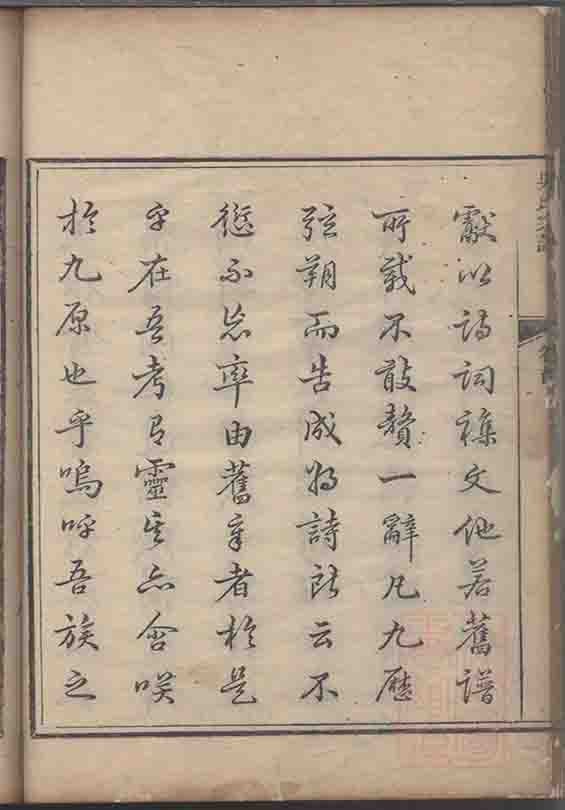 獻以詩詞襍文他若舊譜
所載不敢贅一辭凡九歷
弦朔而告成如詩所云不
愆不忘率由舊章者於是
乎在吾考有靈其亦含咲
於九原也乎嗚呼吾族之